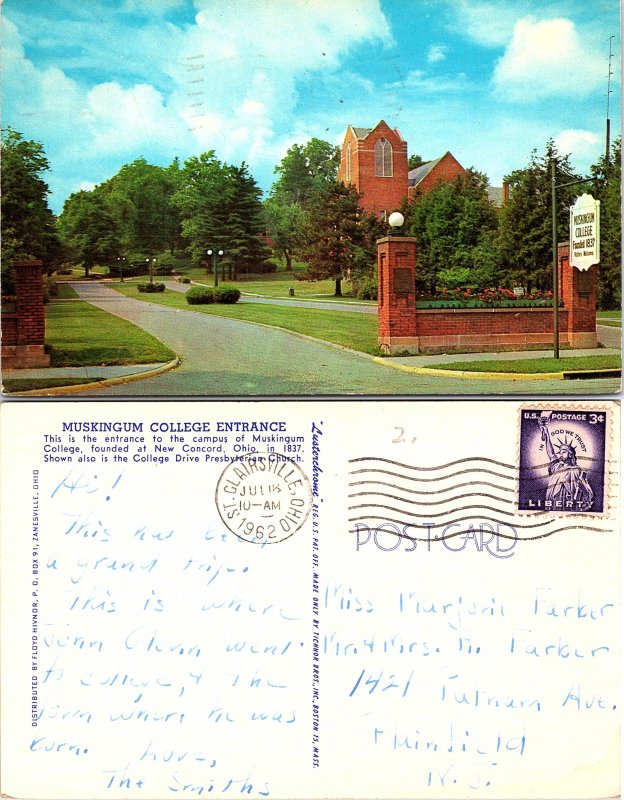 MUSKINGUM
COLLEGE
Founded 1837
Visitors Welcome
MUSKINGUM COLLEGE ENTRANCE
This is the entrance to the campus of Muskingum
College, founded at New Concord, Ohio, in 1837.
Shown also is the College Drive Presbyterian Church.
Hi!
This has been
a grand trip.
This is where
John Glenn went
to college, & the
town where he was
born.
Love,
The Smiths
DISTRIBUTED BY FLOYD HIVNOR, P. O. BOX 91, ZANESVILLE, OHIO
"Lusterchrome" REG. U.S. PAT. OFF. MADE ONLY BY TICHNOR BROS., INC., BOSTON 15, MASS.
ST. CLAIRSVILLE, OHIO
JUL 18
10-AM
1962
2.
U.S. POSTAGE 3¢
IN GOD WE TRUST
LIBERTY
POST CARD
Miss Marjorie Parker
Mr. & Mrs. M. Parker
1421 Putnam Ave.
Plainfield
N. J.